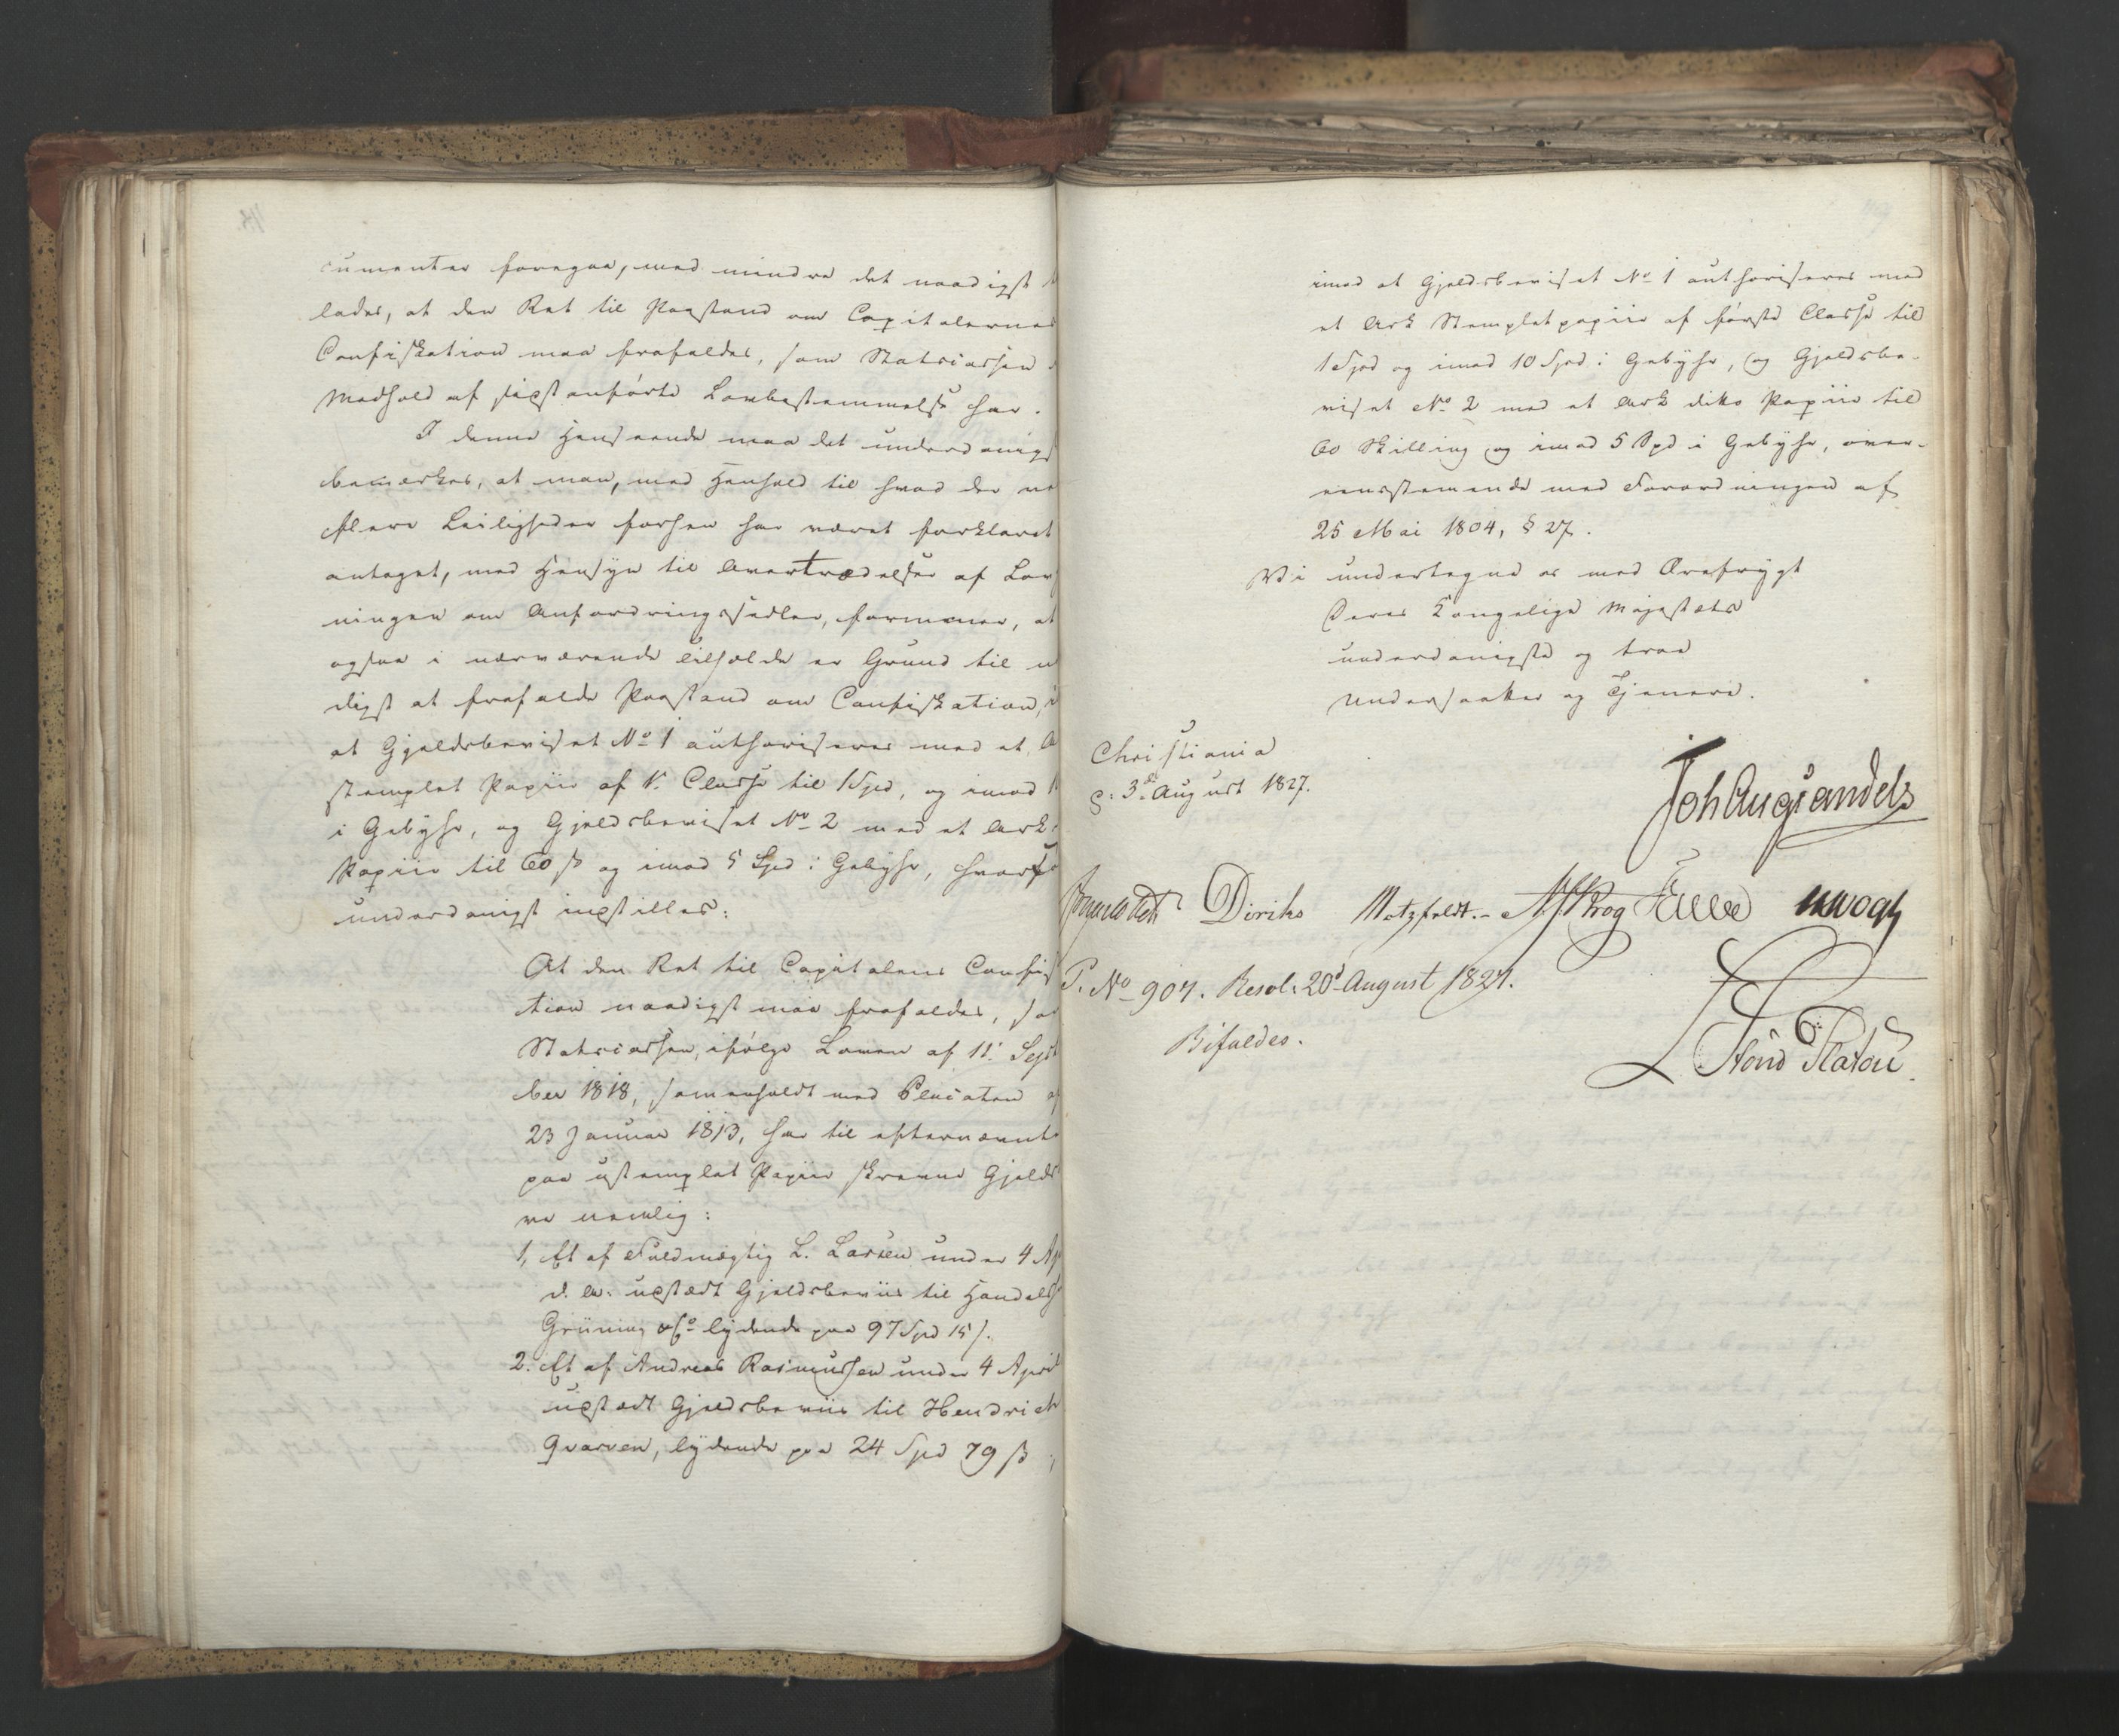 cumenter foregaa, med mindre det naadigst
lades, at den Ret til Paastand om Capitalernes
Confiskation maa frafaldes, som Statscassen
Medhold af sidstanførte Lovbestemmelse har.
I denne Henseende maa det underdanigst
bemærkes, at man, med Henhold til hvad der ve
flere Leiligheder forhen har været forklaret
antaget, med Hensyn til Overtrædelser af Lov
ningen om Anfordringssedler, formener, at
ogsaa i nærværende Tilfælde er Grund til
digst at frafalde Paastand om Confiskation,
at Gjeldsbeviset No 1 authoriseres med et A
stemplet Papiir af 1. Classe til 1 Spd, og imod 1
i Gebyhr, og Gjeldsbeviset No 2 med et Ark
Papiir til 60 ß og imod 5 Spd i Gebyhr, hvorfor
underdanigst indstilles:
At den Ret til Capitalens Confis
tion naadigst maa frafaldes, so
Statscassen, ifølge Loven af 11. Sept
ber 1818, sammenholdt med Placaten
23 Januar 1813, har til efternævnte
paa ustemplet Papiir skrevne Gjelds
ve nemlig:
1, Et af Fuldmægtig L. Larsen under 4 Ap
d. A. udstædt Gjeldsbeviis til Handels
Grüning & Co lydende paa 97 Spd 15 ß.
2. Et af Andreas Rasmussen under 4 April
udstædt Gjeldsbeviis til Hendrich
Qvarven, lydende paa 24 Spd 79 ß
imod at Gjeldsbeviset No 1 authoriseres med
et Ark Stemplet papiir af første Classe til
1 Spd og imod 10 Spd i Gebyhr, og Gjeldsbe-
viset No 2 med et Ark dito Papiir til
60 Skilling og imod 5 Spd i Gebyhr, over-
eensstemende med Forordningen af
25 Mai 1804, § 27.
Vi undertegne os med Ærefrygt
Deres Kongelige Majestæts
underdanigste og troe
Undersaatter og Tjenere.
Christiania
d. 3d August 1827.
Joh Aug Sandels
Diriks Motzfeldt. Krog Fasting
P. No 907. Resol. 20d August 1827.
Bifaldes.